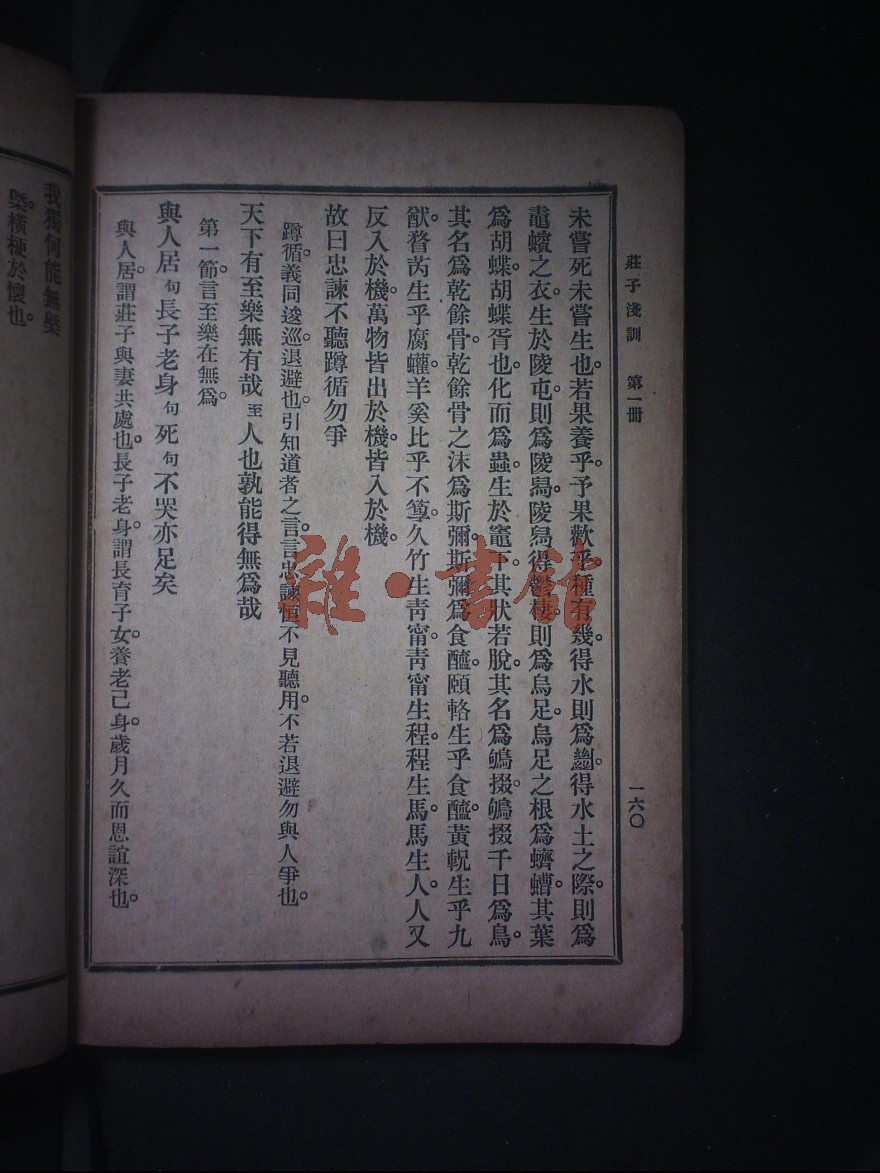 莊子淺訓　第一冊　一六〇
未嘗死未嘗生也。若果養乎。予果歡乎。種有幾。得水則為㡭。得水土之際。則為
鼃蠙之衣。生於陵屯。則為陵舄。陵舄得鬱棲。則為烏足。烏足之根為蠐螬。其葉
為胡蝶。胡蝶胥也。化而為蟲。生於竈下。其狀若脫。其名為鴝掇。鴝掇千日為鳥。
其名為乾餘骨。乾餘骨之沫為斯彌。斯彌為食醯。頤輅生乎食醯。黃軦生乎九
猷。瞀芮生乎腐蠸。羊奚比乎不箰。久竹生青甯。青甯生程。程生馬。馬生人。人又
反入於機。萬物皆出於機。皆入於機。
故曰忠諫不聽蹲循勿爭
蹲循。義同逡巡。退避也。引知道者之言。言忠諫
不見聽用。不若退避勿與人爭也。
天下有至樂無有哉 至 人也孰能得無為哉
第一節。言至樂在無為。
與人居 句 長子老身 句 死 句 不哭亦足矣
與人居。謂莊子與妻共處也。長子老身。謂長育子女。養老己身。歲月久而恩誼深也。
我獨何能無槩
槩。橫梗於懷也。
雜·書館